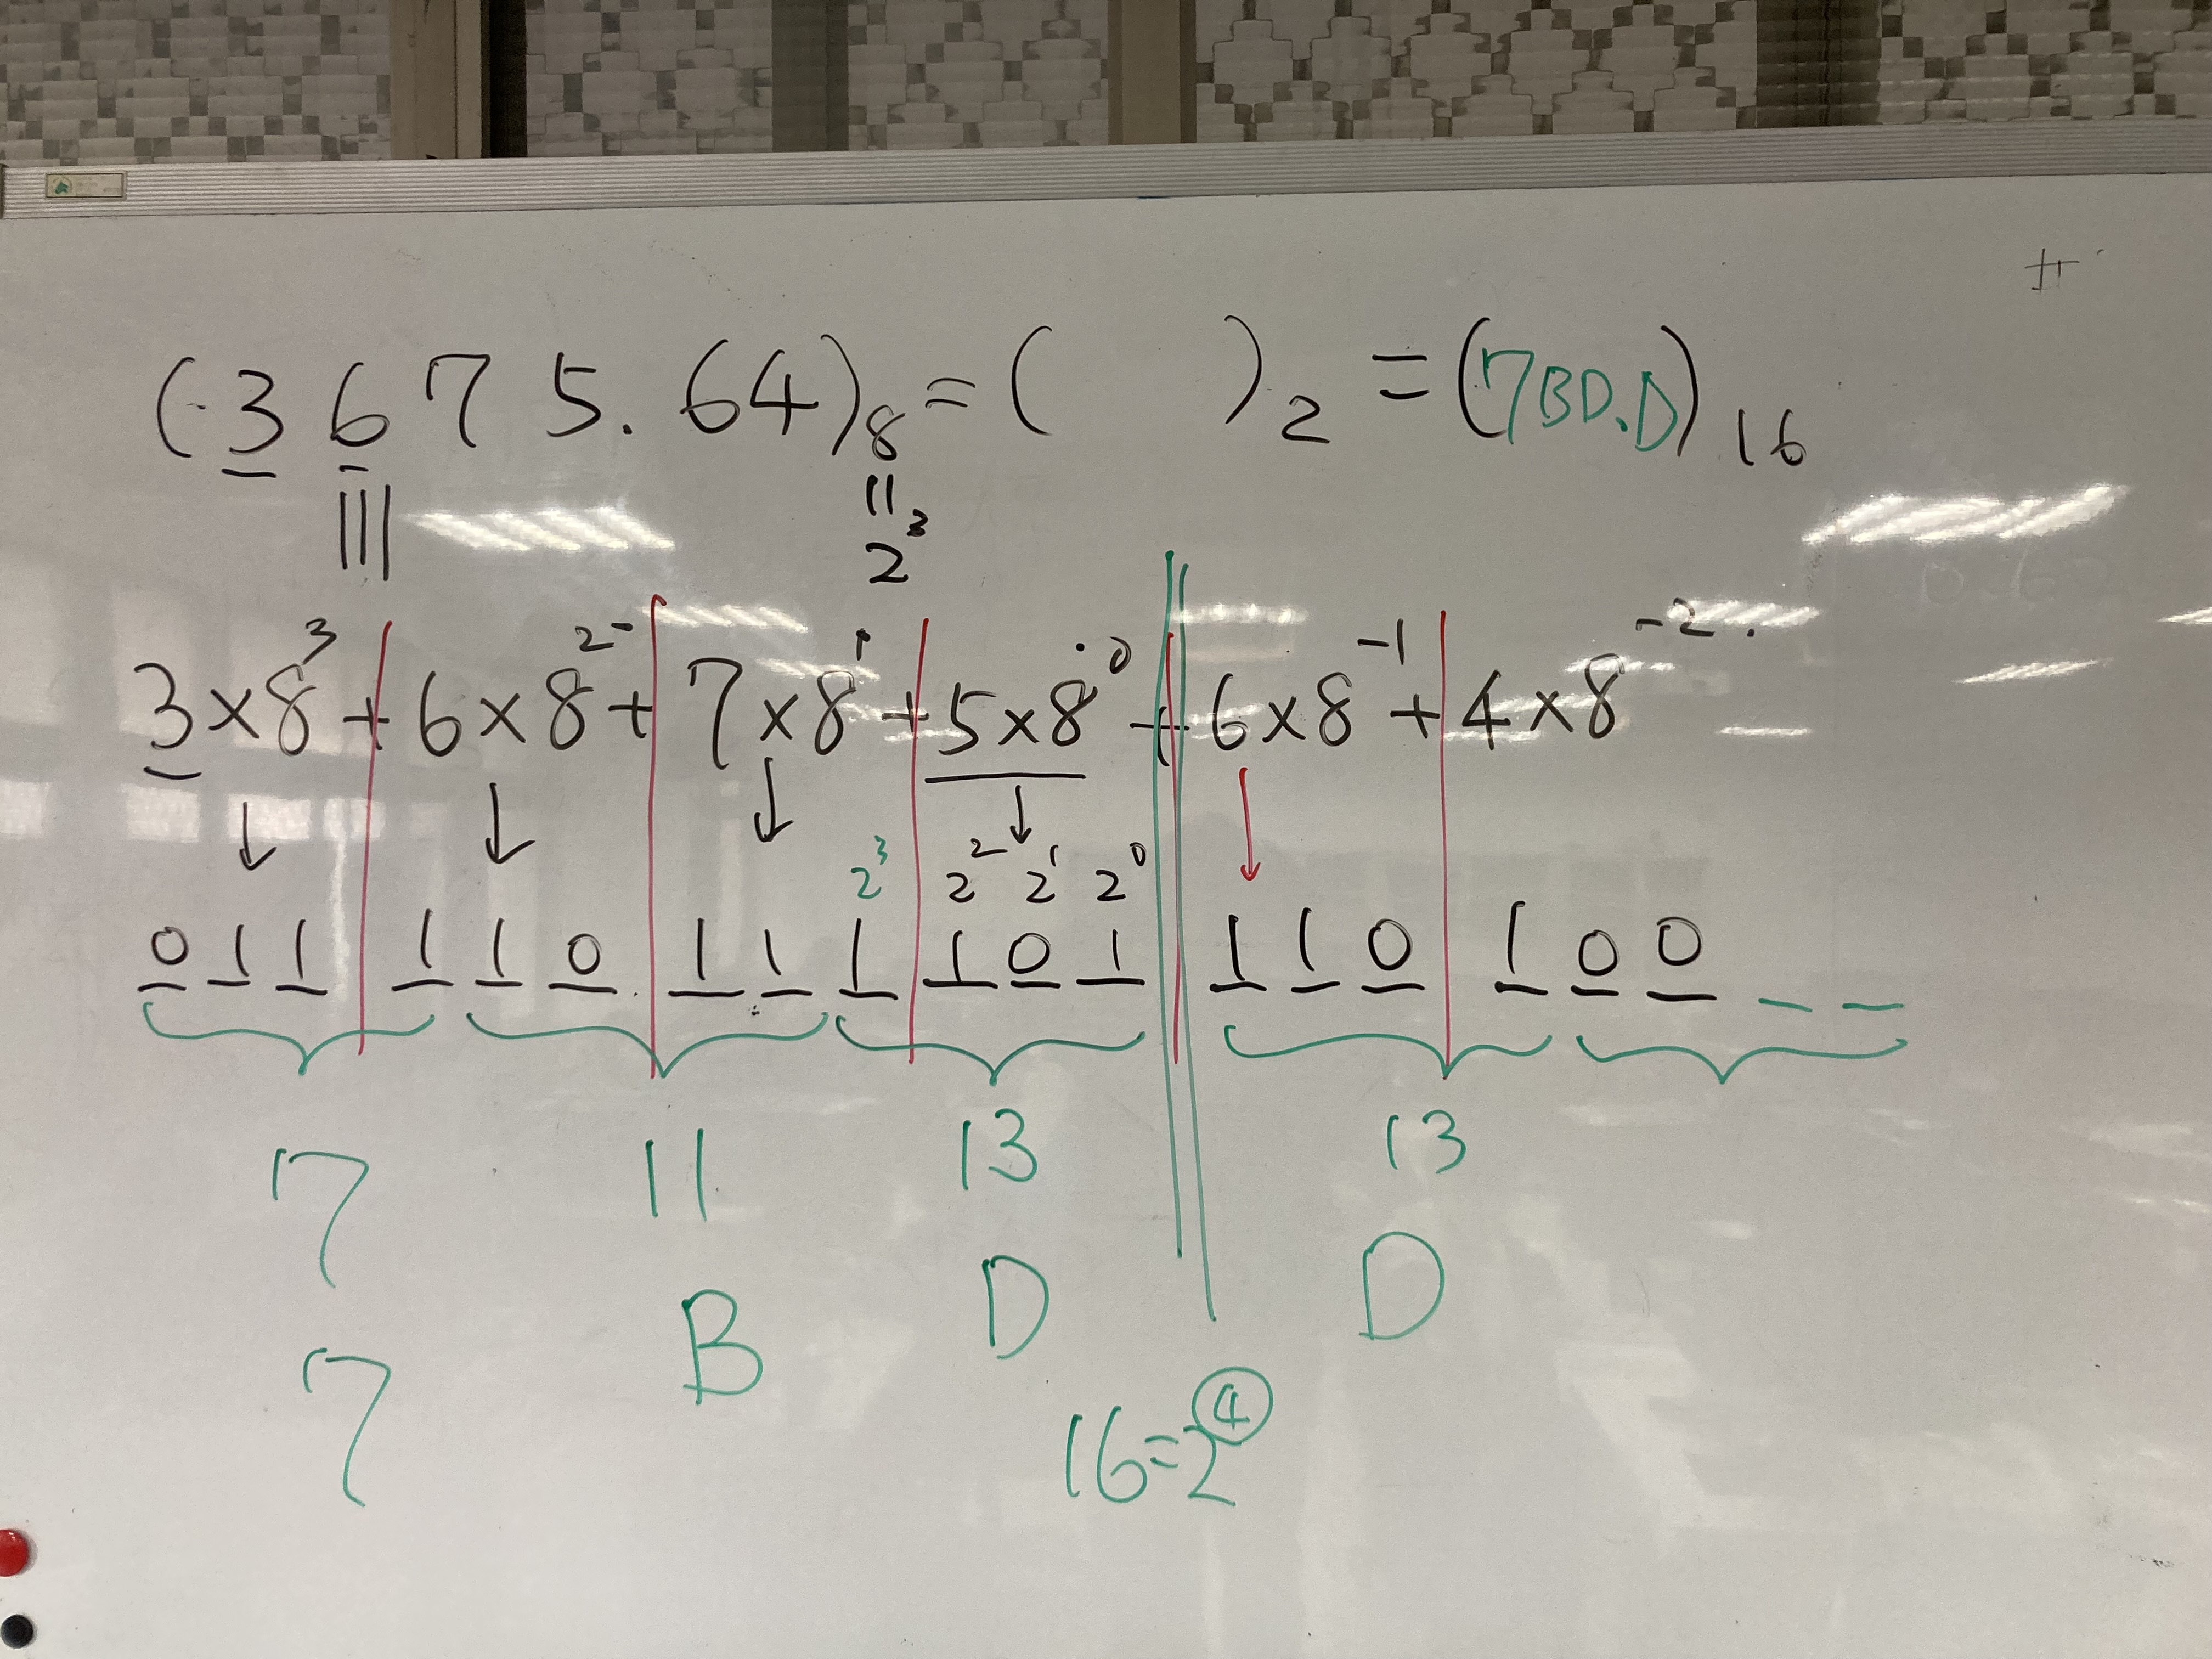 (3 6 7 5.64)₈ = ( )₂ = (7BD.D)₁₆
||| 
||
2³
3×8³ + 6×8² + 7×8¹ + 5×8⁰ + 6×8⁻¹ + 4×8⁻²
2³ 2² 2¹ 2⁰
0 1 1 1 1 0 1 1 1 1 0 1 1 1 0 1 0 0 _ _
7 11 13 13
7 B D D
16=2④